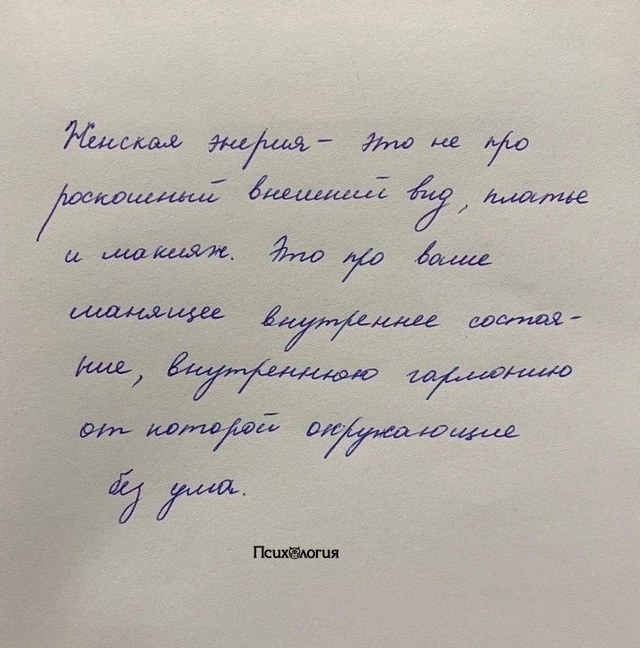 Женская энергия – это не про
роскошный внешний вид, платье
и макияж. Это про ваше
манящее внутреннее состоя-
ние, внутреннюю гармонию
от которой окружающие
без ума.
Психология